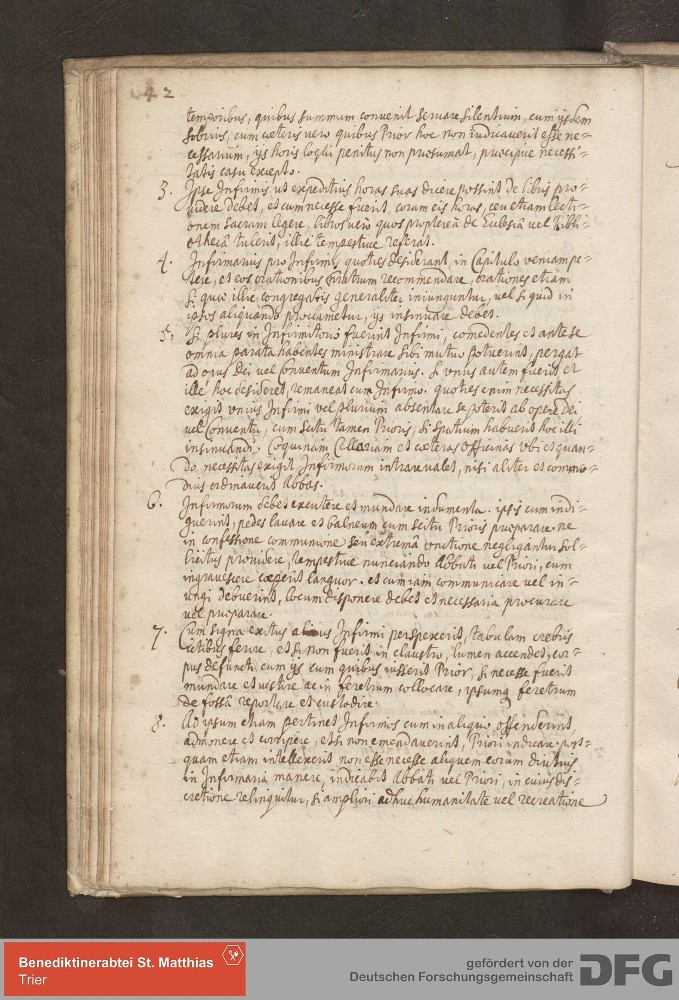 42
temporibus, quibus summum convenit servare silentium, cum ijsdem
sobriis, cum caeteris vero quibus Prior hoc non iudicaverit esse ne=
cessarium, ijs horis loqui penitus non praesumat, praecipue necessi=
tatis casu excepto.
3. Ipse Infirmis, ut expeditius horas suas dicere possint de libris pro=
videre debet, et cum necesse fuerit, coram eis horas, ceu etiam lecti=
onem sacram legere, libros vero quos propterea de Ecclesiâ vel Bibli=
othecâ tulerit, illic tempestive referat.
4. Infirmarius pro Infirmis, quoties desiderant, in Capitulo veniam pe=
tere, et eos orationibus fratrum recommendare, orationes etiam
si quae illic congregatis generaliter iniunguntur, vel si quid in
ipsos aliquando proclametur, ijs insinuare debet.
5. Si plures in Infirmitorio fuerint Infirmi, comedentes et ante se
omnia parata habentes ministrare sibi mutuo potuerint, pergat
ad opus Dei vel Conventum Infirmarius. Si unus autem fuerit et
ille hoc desideret, remaneat cum Infirmo. quoties enim necessitas
exigit unius Infirmi vel plurium absentare se poterit ab opere Dei
vel Conventu, cum scitu tamen Prioris, si spatium habuerit hoc illi
insinuandi. Coquinam Cellarium et caeteras Officinas ubi et quan=
do necessitas exigit Infirmorum intrare valet, nisi aliter et commo=
dius ordinaverit Abbas.
6. Infirmorum debet excutere et mundare indumenta. ipsis cum indi=
guerint, pedes lavare et balneum cum scitu Prioris praeparare. ne
in confessione communione seu extremâ unctione negligantur sol=
licitus providere, tempestive nunciando Abbati vel Priori, cum
ingravescere coeperit languor. et cum iam communicare vel in=
ungi debuerint, locum disponere debet et necessaria procurare
vel praeparare.
7. Cum signa exitus alicuius Infirmi perspexerit, tabulam crebris
ictibus ferire, et si non fuerit in claustro, lumen accendet, cor=
pus defuncti cum ijs cum quibus iusserit Prior, si necesse fuerit
mundare et vestire ac in feretrum collocare, ipsumq feretrum
de fossâ reportare et custodire.
8. Ad ipsum etiam pertinet Infirmos cum in aliquo offenderint,
admonere et corripere, et si non emendaverint, Priori indicare. post=
quam etiam intellexerit non esse necesse aliquem eorum diutius
in Infirmaria manere, indicabit Abbati vel Priori, in cuius dis=
cretione relinquitur, si ampliori adhuc humanitate vel recreatione
Benediktinerabtei St. Matthias
Trier
gefördert von der
Deutschen Forschungsgemeinschaft
DFG